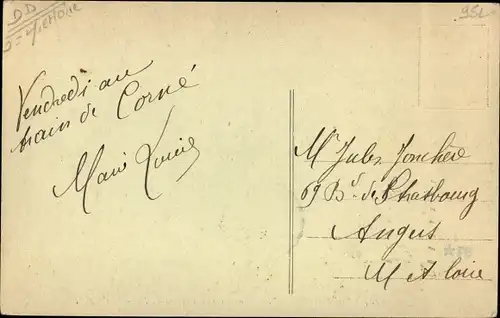 DD
952
Vendredi au
train de Corné
Marie Louise
Mr Jules Jonchère
69 Bd de Strasbourg
Angers
M et Loire